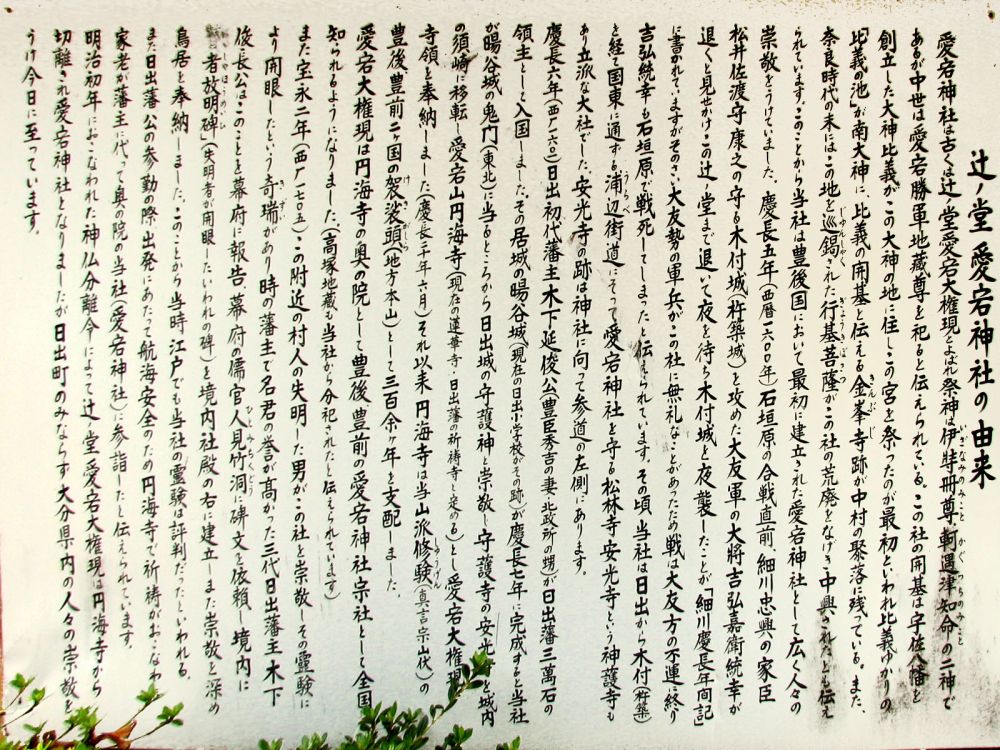 辻ノ堂愛宕神社の由来
愛宕神社は古くは辻ノ堂愛宕大権現とよばれ祭神は伊特冊尊、軻遇津知命の二神で
あるが中世は愛宕勝軍地蔵尊を祀ると伝えられている。この社の開基は宇佐八幡を
創立した大神比義が、この大神の地に住しこの宮を祭ったのが最初といわれ比義ゆかりの
「比義の池」が南大神に、比義の開基と伝える金峯寺跡が中村の聚落に残っている。また、
奈良時代の末にはこの地を巡錫された行基菩薩がこの社の荒廃をなげき中興されたとも伝え
られています。このことから当社は豊後国において最初に建立された愛宕神社として広く人々の
崇敬をうけていました。慶長五年(西暦一六〇〇年)石垣原の合戦直前、細川忠興の家臣
松井佐渡守康之の守る木付城(杵築城)を攻めた大友軍の大将吉弘嘉衛統幸が
退くと見せかけ、この辻ノ堂まで退いて夜を待ち木付城を夜襲したことが「細川慶長年間記」
に書かれていますがそのさい大友勢の軍兵がこの社に無礼なことがあったため戦は大友方の不運に終り
吉弘統幸も石垣原で戦死してしまったと伝えられています。その頃当社は日出から木付(杵築)
を経て国東に通ずる浦辺街道にそって愛宕神社を守る松林寺、安光寺という神護寺も
あり立派な大社でした。安光寺の跡は神社に向って参道の左側にあります。
慶長六年(西暦一六〇一)日出初代藩主木下延俊公(豊臣秀吉の妻・北政所の甥)が日出藩三萬石の
領主として入国しました。その居城の暘谷城(現在の日出小学校がその跡)が慶長七年に完成すると当社
が暘谷城の鬼門(東北)に当るところから日出城の守護神と崇敬し守護寺の安光寺を城内
の須崎に移転し愛宕山円海寺(現在の蓮華寺・日出藩の祈祷寺と定める)とし愛宕大権現
寺領を奉納しました(慶長十年六月)それ以来、円海寺は当山派修験(真言宗山伏)の
豊後、豊前二ヶ国の袈裟頭(地方本山)として三百余ヶ年を支配しました。
愛宕大権現は円海寺の奥の院として豊後、豊前の愛宕神社宗社として全国
知られるようになりました。(高塚地蔵も当社から分祀されたと伝えられています)
また宝永二年(西暦一七〇五)この附近の村人の失明した男がこの社を崇敬しその霊験に
より開眼したという奇瑞があり時の藩主で名君の誉が高かった三代日出藩主木下
俊長公はこのことを幕府に報告、幕府の儒官人見竹洞に碑文を依頼し境内に
者放明碑(失明者が開眼したいわれの碑)を境内社殿の右に建立しまた崇敬を深め
鳥居を奉納しました。このことから当時江戸でも当社の霊験は評判だったといわれる。
また日出藩公の参勤の際、出発にあたって航海安全のため円海寺で祈祷がおこなわれ
家老が藩主に代って奥の院の当社(愛宕神社)に参詣したと伝えられています。
明治初年におこなわれた神仏分離令によって辻ノ堂愛宕大権現は円海寺から
切離され愛宕神社となりましたが日出町のみならず大分県内の人々の崇敬を
うけ今日に至っています。